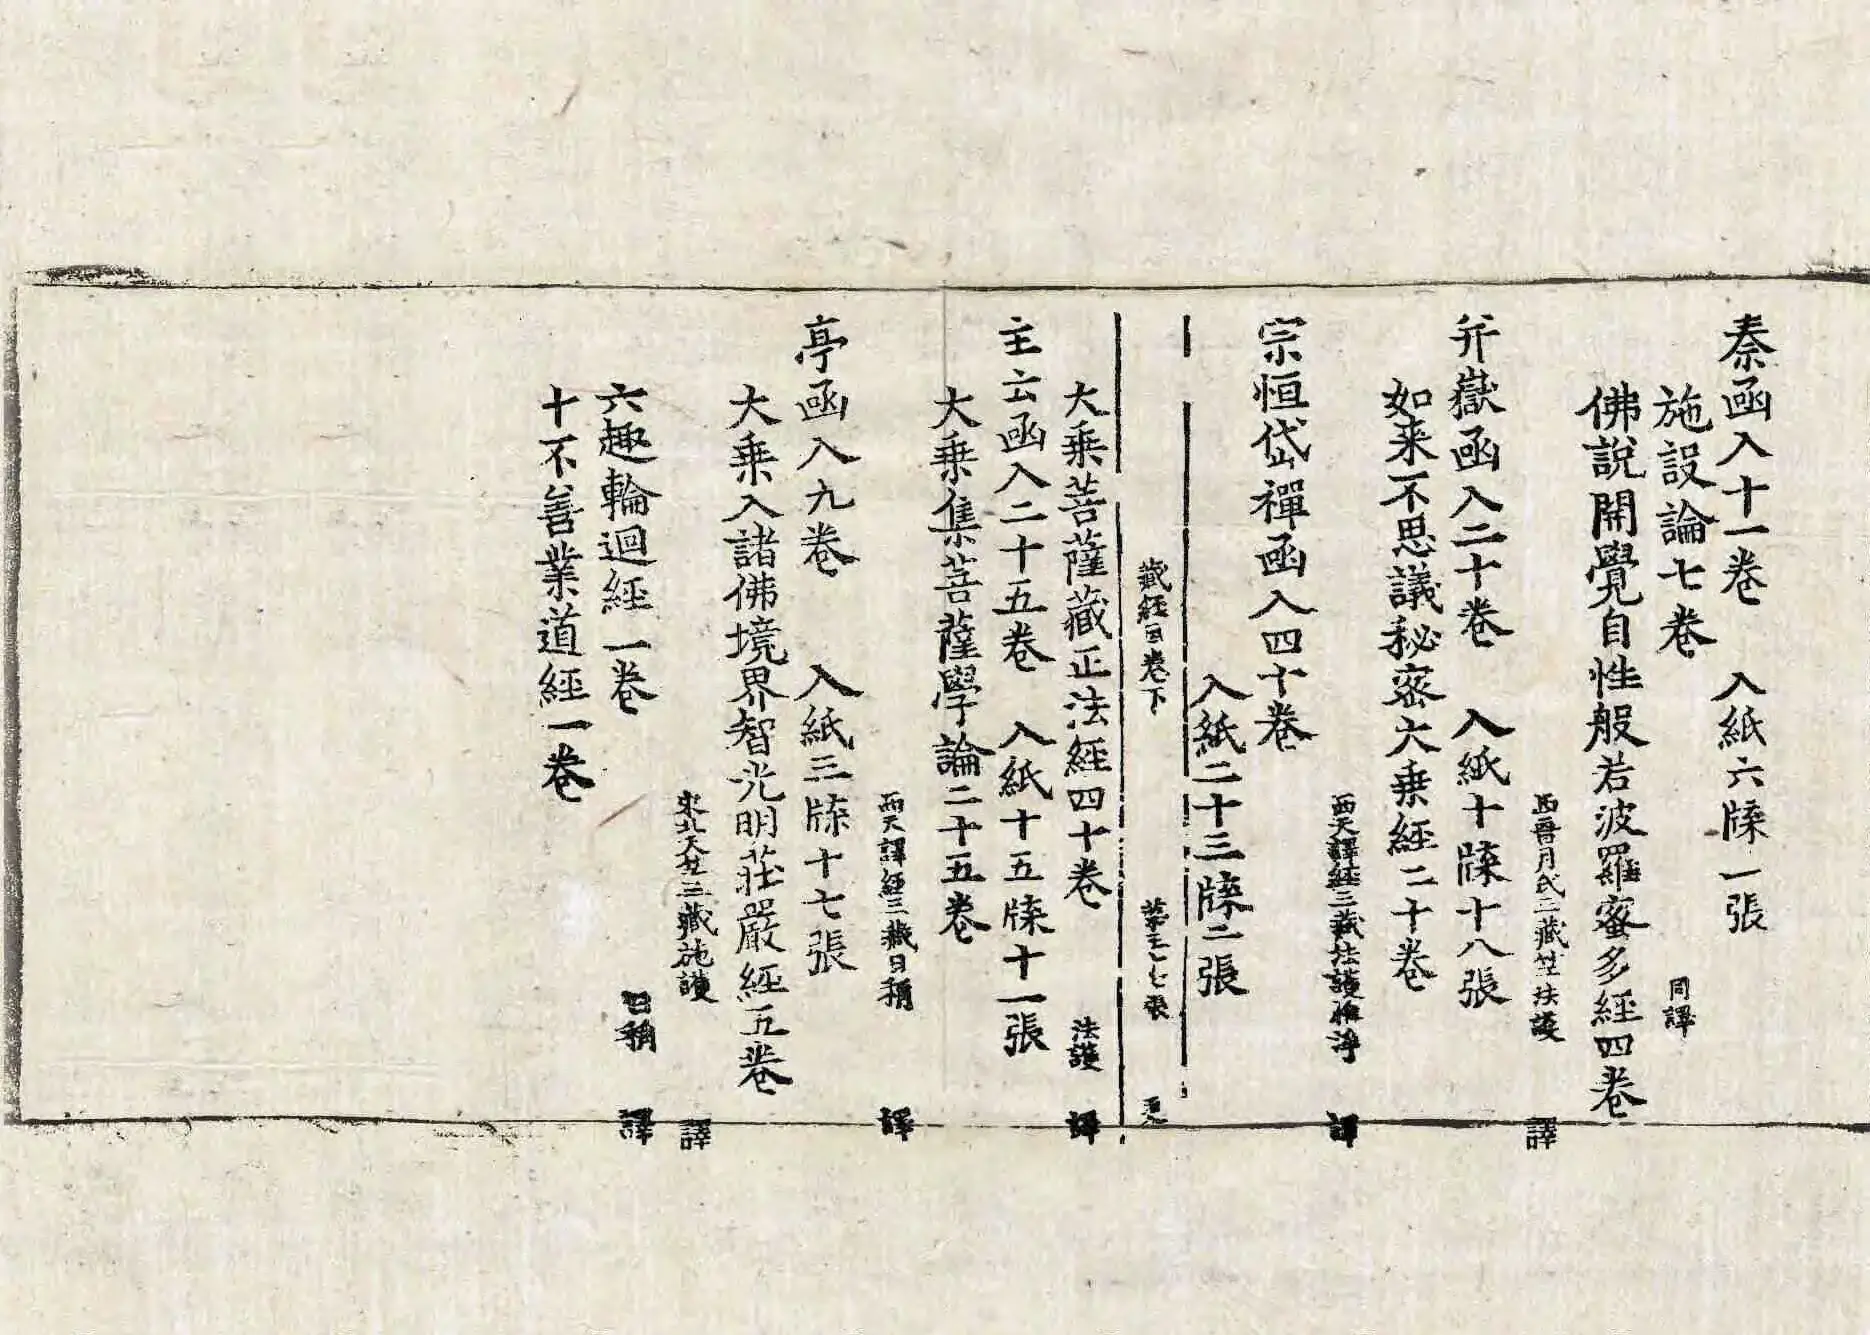 秦函入十一卷　入紙六牒一張
施設論七卷　同譯
佛說開覺自性般若波羅蜜多經四卷
西晉月氏三藏竺法護　譯
并嶽函入二十卷　入紙十牒十八張
如来不思議秘密大乗經二十卷
西天譯經三藏法護惟淨　譯
宗恒岱禪函入四十卷
入紙二十三牒二張
藏經目卷下　第三　七張
大乗菩薩藏正法經四十卷　法護　譯
主云函入二十五卷　入紙十五牒十一張
大乗集菩薩學論二十五卷
西天譯經三藏日稱　譯
亭函入九卷　入紙三牒十七張
大乗入諸佛境界智光明莊嚴經五卷
宋北天竺三藏施護　譯
六趣輪迴經一卷　日稱　譯
十不善業道經一卷